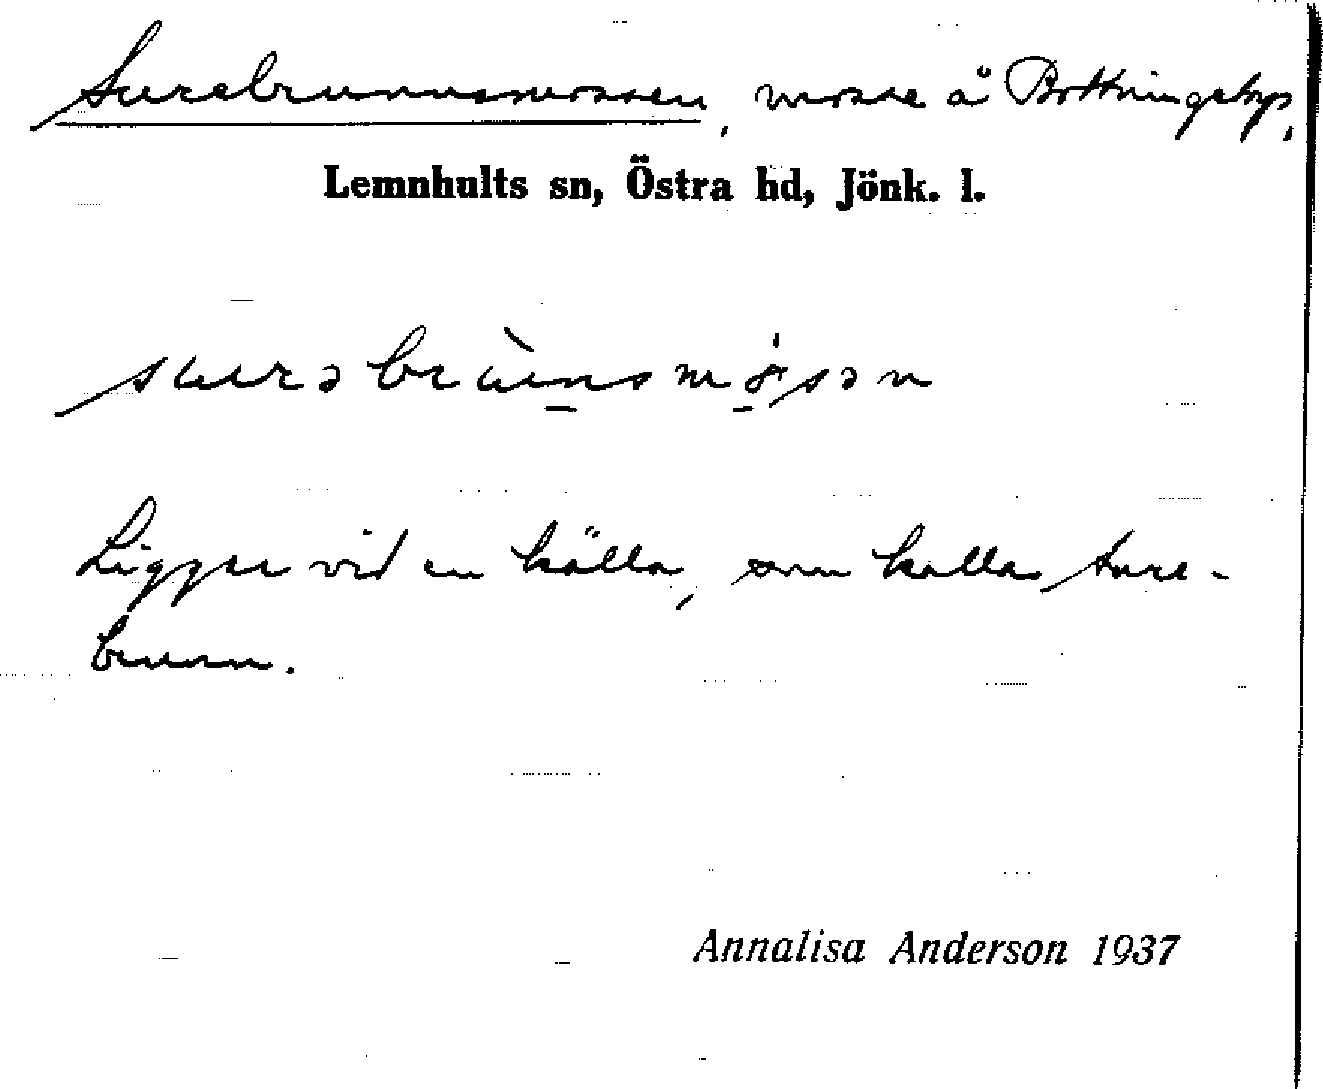 Surebrunnsmossen, mosse å Bottningstorp,
Lemnhults sn, Östra hd, Jönk. l.
Ligger vid en källa, som kallas Sure-
brunn.
Annalisa Anderson 1937